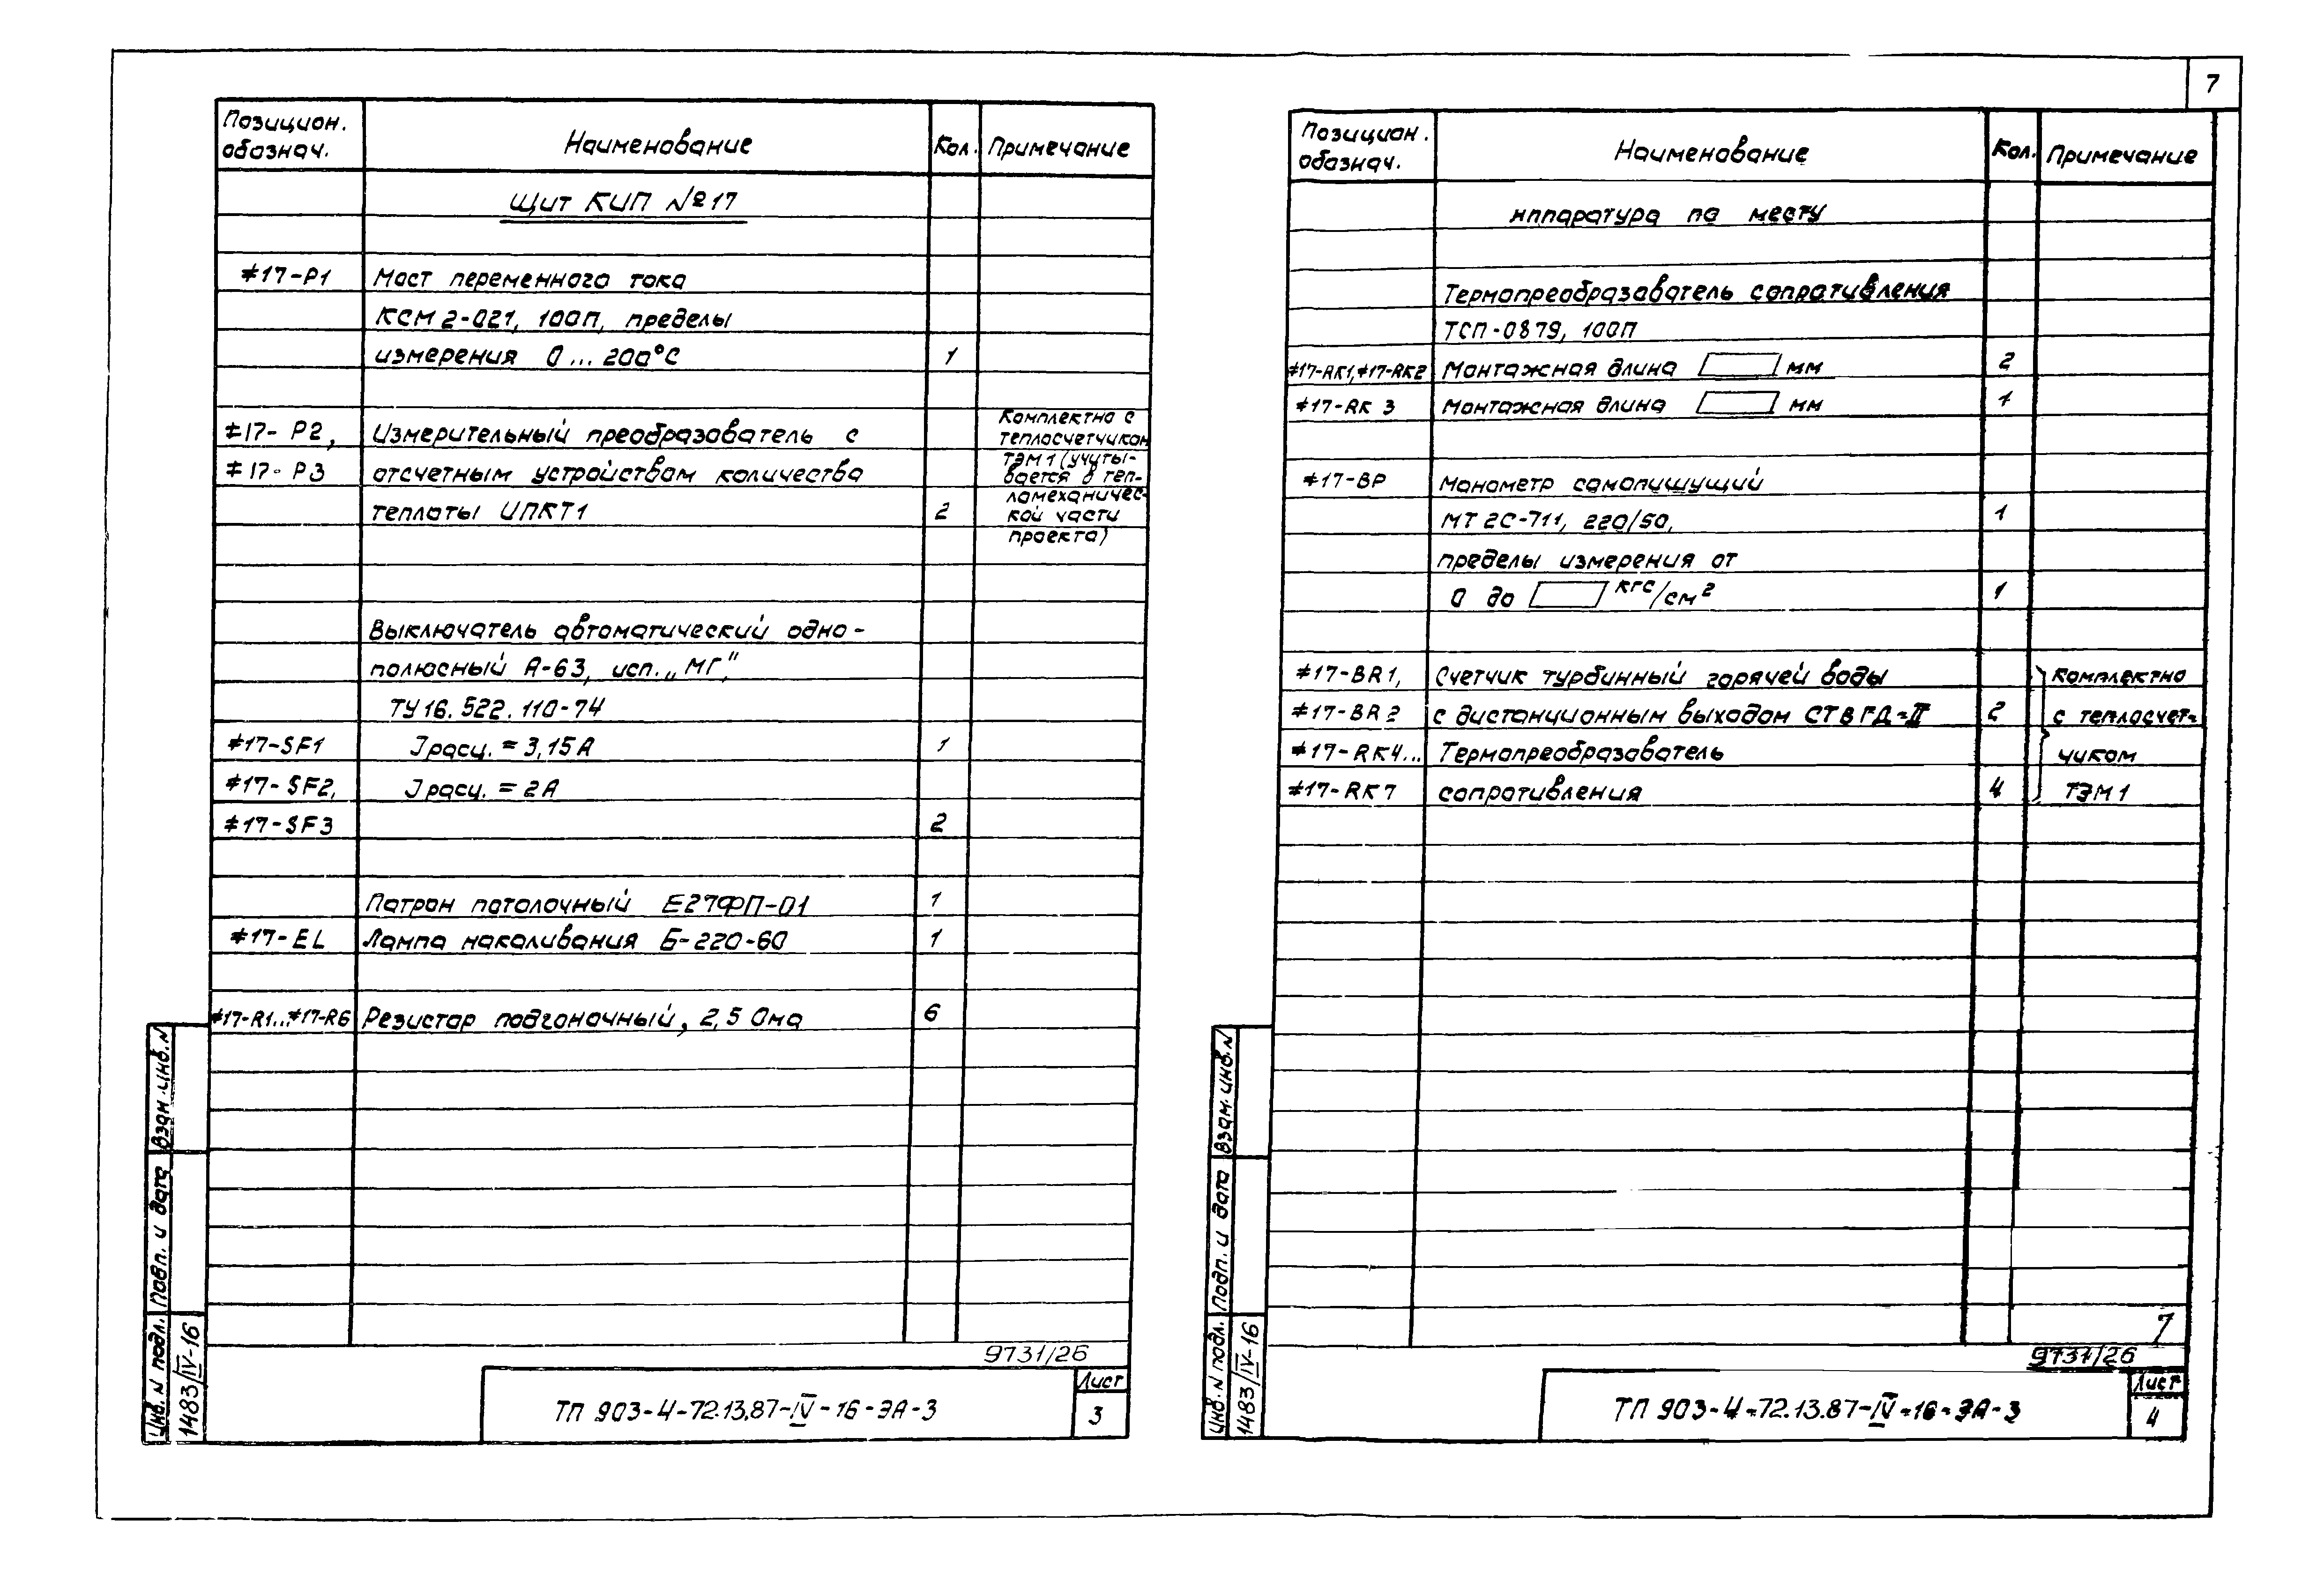 7
Позицион. обознач. Наименование Кол. Примечание
Щит КИП №17
≠17-P1 Мост переменного тока
КСМ2-021, 100П, пределы
измерения 0...200°С 1
≠17-P2, Измерительный преобразователь с
≠17-P3 отсчетным устройством количества
теплоты ИПКТ1 2
Комплектно с
теплосчетчиком
ТЭМ1 (учиты-
вается в теп-
ломеханичес-
кой части
проекта)
Выключатель автоматический одно-
полюсный А-63, исп. „МГ",
ТУ16.522.110-74
≠17-SF1 Iрасц. = 3,15А 1
≠17-SF2, Iрасц. = 2А
≠17-SF3 2
Патрон потолочный Е27ФП-01 1
≠17-EL Лампа накаливания Б-220-60 1
≠17-R1...≠17-R6 Резистор подгоночный, 2,5 Ома 6
Взам. инв. N
Подп. и дата
Инв. N подл.
1483/IV-16
9731/26
ТП 903-4-72.13.87-IV-16-ЭА-3
Лист
3
Позицион. обознач. Наименование Кол. Примечание
Аппаратура по месту
Термопреобразователь сопротивления
ТСП-0879, 100П
≠17-RK1, ≠17-RK2 Монтажная длина мм 2
≠17-RK3 Монтажная длина мм 1
≠17-BP Манометр самопишущий
МТ2С-711, 220/50, 1
пределы измерения от
0 до кгс/см² 1
≠17-BR1, Счетчик турбинный горячей воды комплектно
≠17-BR2 с дистанционным выходом СТВГД-II 2 с теплосчет-
≠17-RK4... Термопреобразователь чиком
≠17-RK7 сопротивления 4 ТЭМ1
Взам. инв. N
Подп. и дата
Инв. N подл.
1483/IV-16
7
9731/26
ТП 903-4-72.13.87-IV-16-ЭА-3
Лист
4